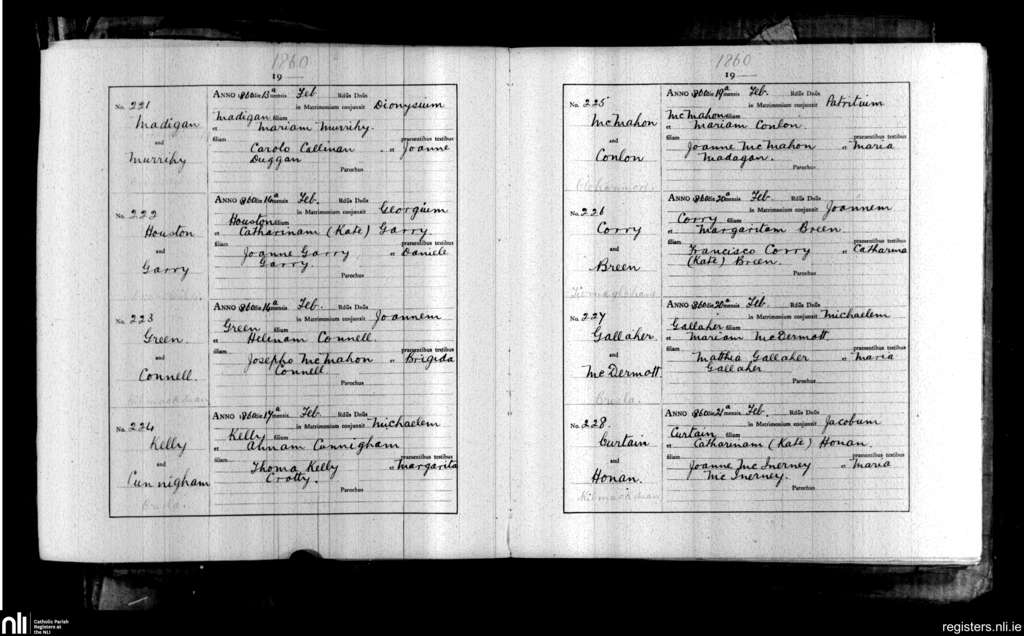 1860
19
No. 221
Madigan
and
Murrihy
ANNO 1860 die 13a mensis Feb. Rdŭs Dnŭs
in Matrimonium conjunxit Dionysium
Madigan filium
et Mariam Murrihy.
filiam praesentibus testibus
Carolo Callinan et Joanne
Duggan
Parochus
No. 222
Houston
and
Garry
ANNO 1860 die 16a mensis Feb. Rdŭs Dnŭs
in Matrimonium conjunxit Georgium
Houston filium
et Catharinam (Kate) Garry
filiam praesentibus testibus
Joanne Garry et Daniele
Garry.
Parochus
No. 223
Green
and
Connell.
ANNO 1860 die 16a mensis Feb. Rdŭs Dnŭs
in Matrimonium conjunxit Joannem
Green filium
et Helenam Connell.
filiam praesentibus testibus
Josepho McMahon et Brigida
Connell.
Parochus
No. 224
Kelly
and
Cunnigham
ANNO 1860 die 17a mensis Feb. Rdŭs Dnŭs
in Matrimonium conjunxit Michaelem
Kelly filium
et Annam Cunnigham
filiam praesentibus testibus
Thoma Kelly et Margarita
Crotty.
Parochus
1860
19
No. 225
McMahon
and
Conlon
ANNO 1860 die 19a mensis Feb. Rdŭs Dnŭs
in Matrimonium conjunxit Patritium
McMahon filium
et Mariam Conlon.
filiam praesentibus testibus
Joanne McMahon et Maria
Madagan.
Parochus
No. 226
Corry
and
Breen
ANNO 1860 die 20a mensis Feb. Rdŭs Dnŭs
in Matrimonium conjunxit Joannem
Corry filium
et Margaritam Breen
filiam praesentibus testibus
Francisco Corry et Catharina
(Kate) Breen.
Parochus
No. 227
Gallaher
and
McDermott.
ANNO 1860 die 20a mensis Feb. Rdŭs Dnŭs
in Matrimonium conjunxit Michaelem
Gallaher filium
et Mariam McDermott.
filiam praesentibus testibus
Matthia Gallaher et Maria
Gallaher
Parochus
No. 228.
Curtain
and
Honan.
ANNO 1860 die 21a mensis Feb. Rdŭs Dnŭs
in Matrimonium conjunxit Jacobum
Curtain filium
et Catharinam (Kate) Honan.
filiam praesentibus testibus
Joanne McInerney et Maria
McInerney.
Parochus
nli Catholic Parish
Registers at
the NLI
registers.nli.ie